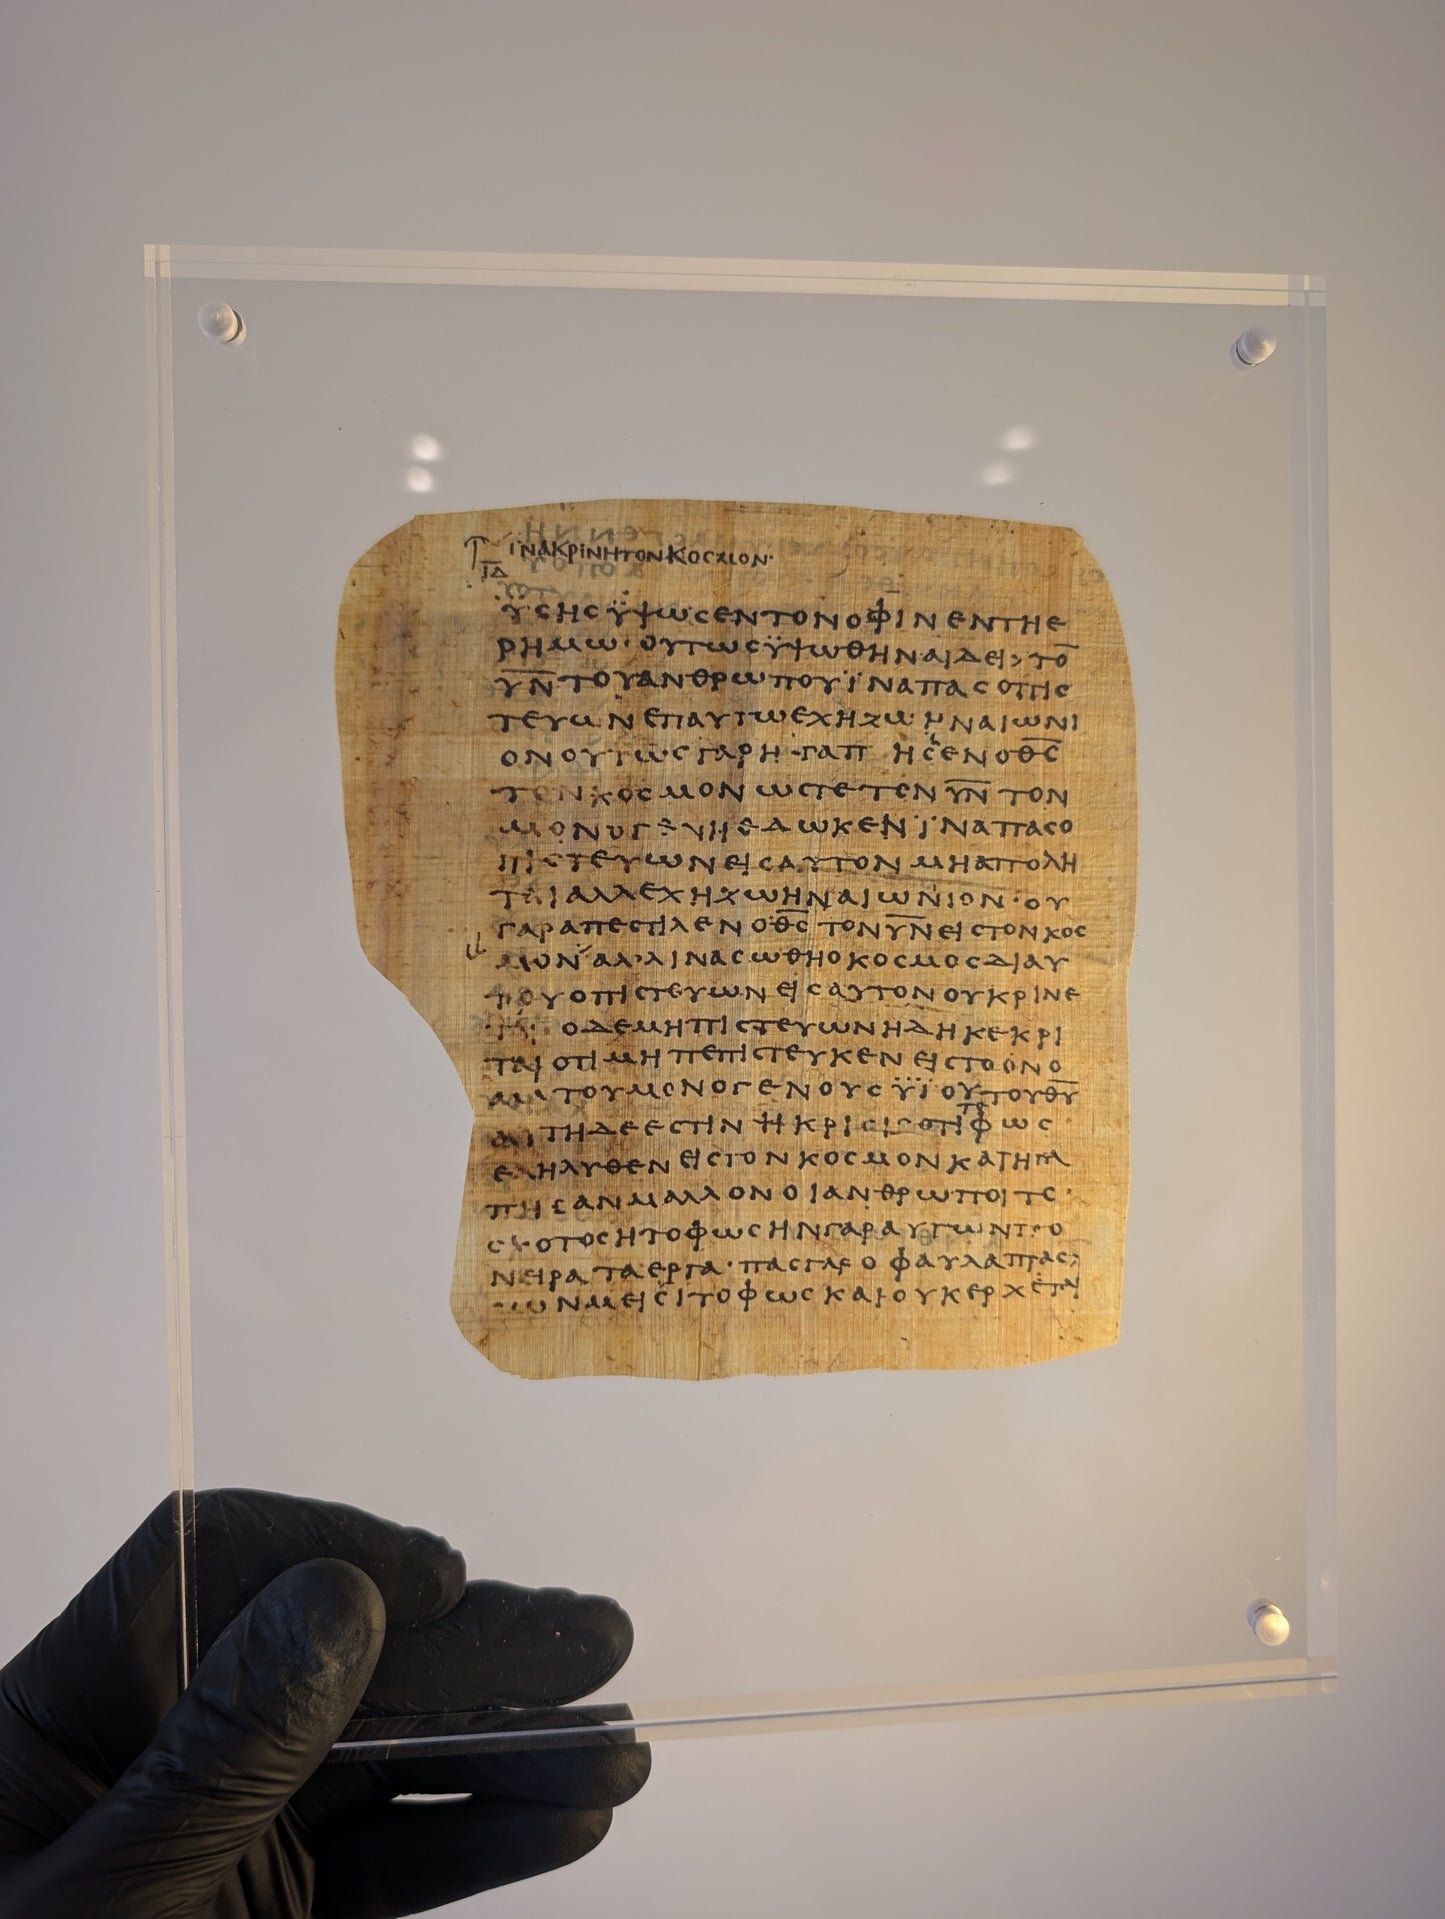 ἹΝΑΚΡΙΝΗΤΟΝΚΟΣΜΟΝ·
ΙΔ
ΥϹΗϹΫΨΩϹΕΝΤΟΝΟΦΙΝΕΝΤΗΕ
ΡΗΜΩ·ΟΥΤΩϹΫΨΩΘΗΝΑΙΔΕΙ> ΤΟ̅
Υ̅Ν̅ΤΟΥΑΝΘΡΩΠΟΥΪΝΑΠΑϹΟΠΙϹ
ΤΕΥΩΝΕΠΑΥΤΩΕΧΗΖΩΗΝΑΙΩΝΙ
ΟΝΟΥΤΩϹΓΑΡΗΓΑΠΗϹΕΝΟΘ̅Ϲ̅
ΤΟΝΚΟϹΜΟΝΩϹΤΕΤΟΝΥ̅Ν̅ΤΟΝ
ΜΟΝΟΓΕΝΗΕΔΩΚΕΝΪΝΑΠΑϹΟ
ΠΙϹΤΕΥΩΝΕΙϹΑΥΤΟΝΜΗΑΠΟΛΗ
ΤΑΙΑΛΛΕΧΗΖΩΗΝΑΙΩΝΙΟΝ·ΟΥ
ΓΑΡΑΠΕϹΤΙΛΕΝΟΘ̅Ϲ̅ΤΟΝΥ̅Ν̅ΕΙϹΤΟΝΚΟϹ
ΜΟΝ ΑΛ·ΛΙΝΑϹΩΘΗΟΚΟϹΜΟϹΔΙΑΥ
ΤΟΥΟΠΙϹΤΕΥΩΝΕΙϹΑΥΤΟΝΟΥΚΡΙΝΕ
ΟΔΕΜΗΠΙϹΤΕΥΩΝΗΔΗΚΕΚΡΙ
ΤΑΙΟΤΙΜΗΠΕΠΙϹΤΕΥΚΕΝΕΙϹΤΟΟΝΟ
ΜΑΤΟΥΜΟΝΟΓΕΝΟΥϹΫΪΟΥΤΟΥΘ̅Υ̅
ΑΥΤΗΔΕΕϹΤΙΝΗΚΡΙϹΙϹΟΤΙΤΟΦΩϹ
ΕΛΗΛΥΘΕΝΕΙϹΤΟΝΚΟϹΜΟΝΚΑΙΗΓΑ
ΠΗϹΑΝΜΑΛΛΟΝΟΙΑΝΘΡΩΠΟΙΤΟ
ϹΚΟΤΟϹΗΤΟΦΩϹΗΝΓΑΡΑΥΤΩΝΠΟ
ΝΗΡΑΤΑΕΡΓΑ·ΠΑϹΓΑΡΟΦΑΥΛΑΠΡΑϹ>
ϹΩΝΜΕΙϹΙΤΟΦΩϹΚΑΙΟΥΚΕΡΧΕΤΑΙ